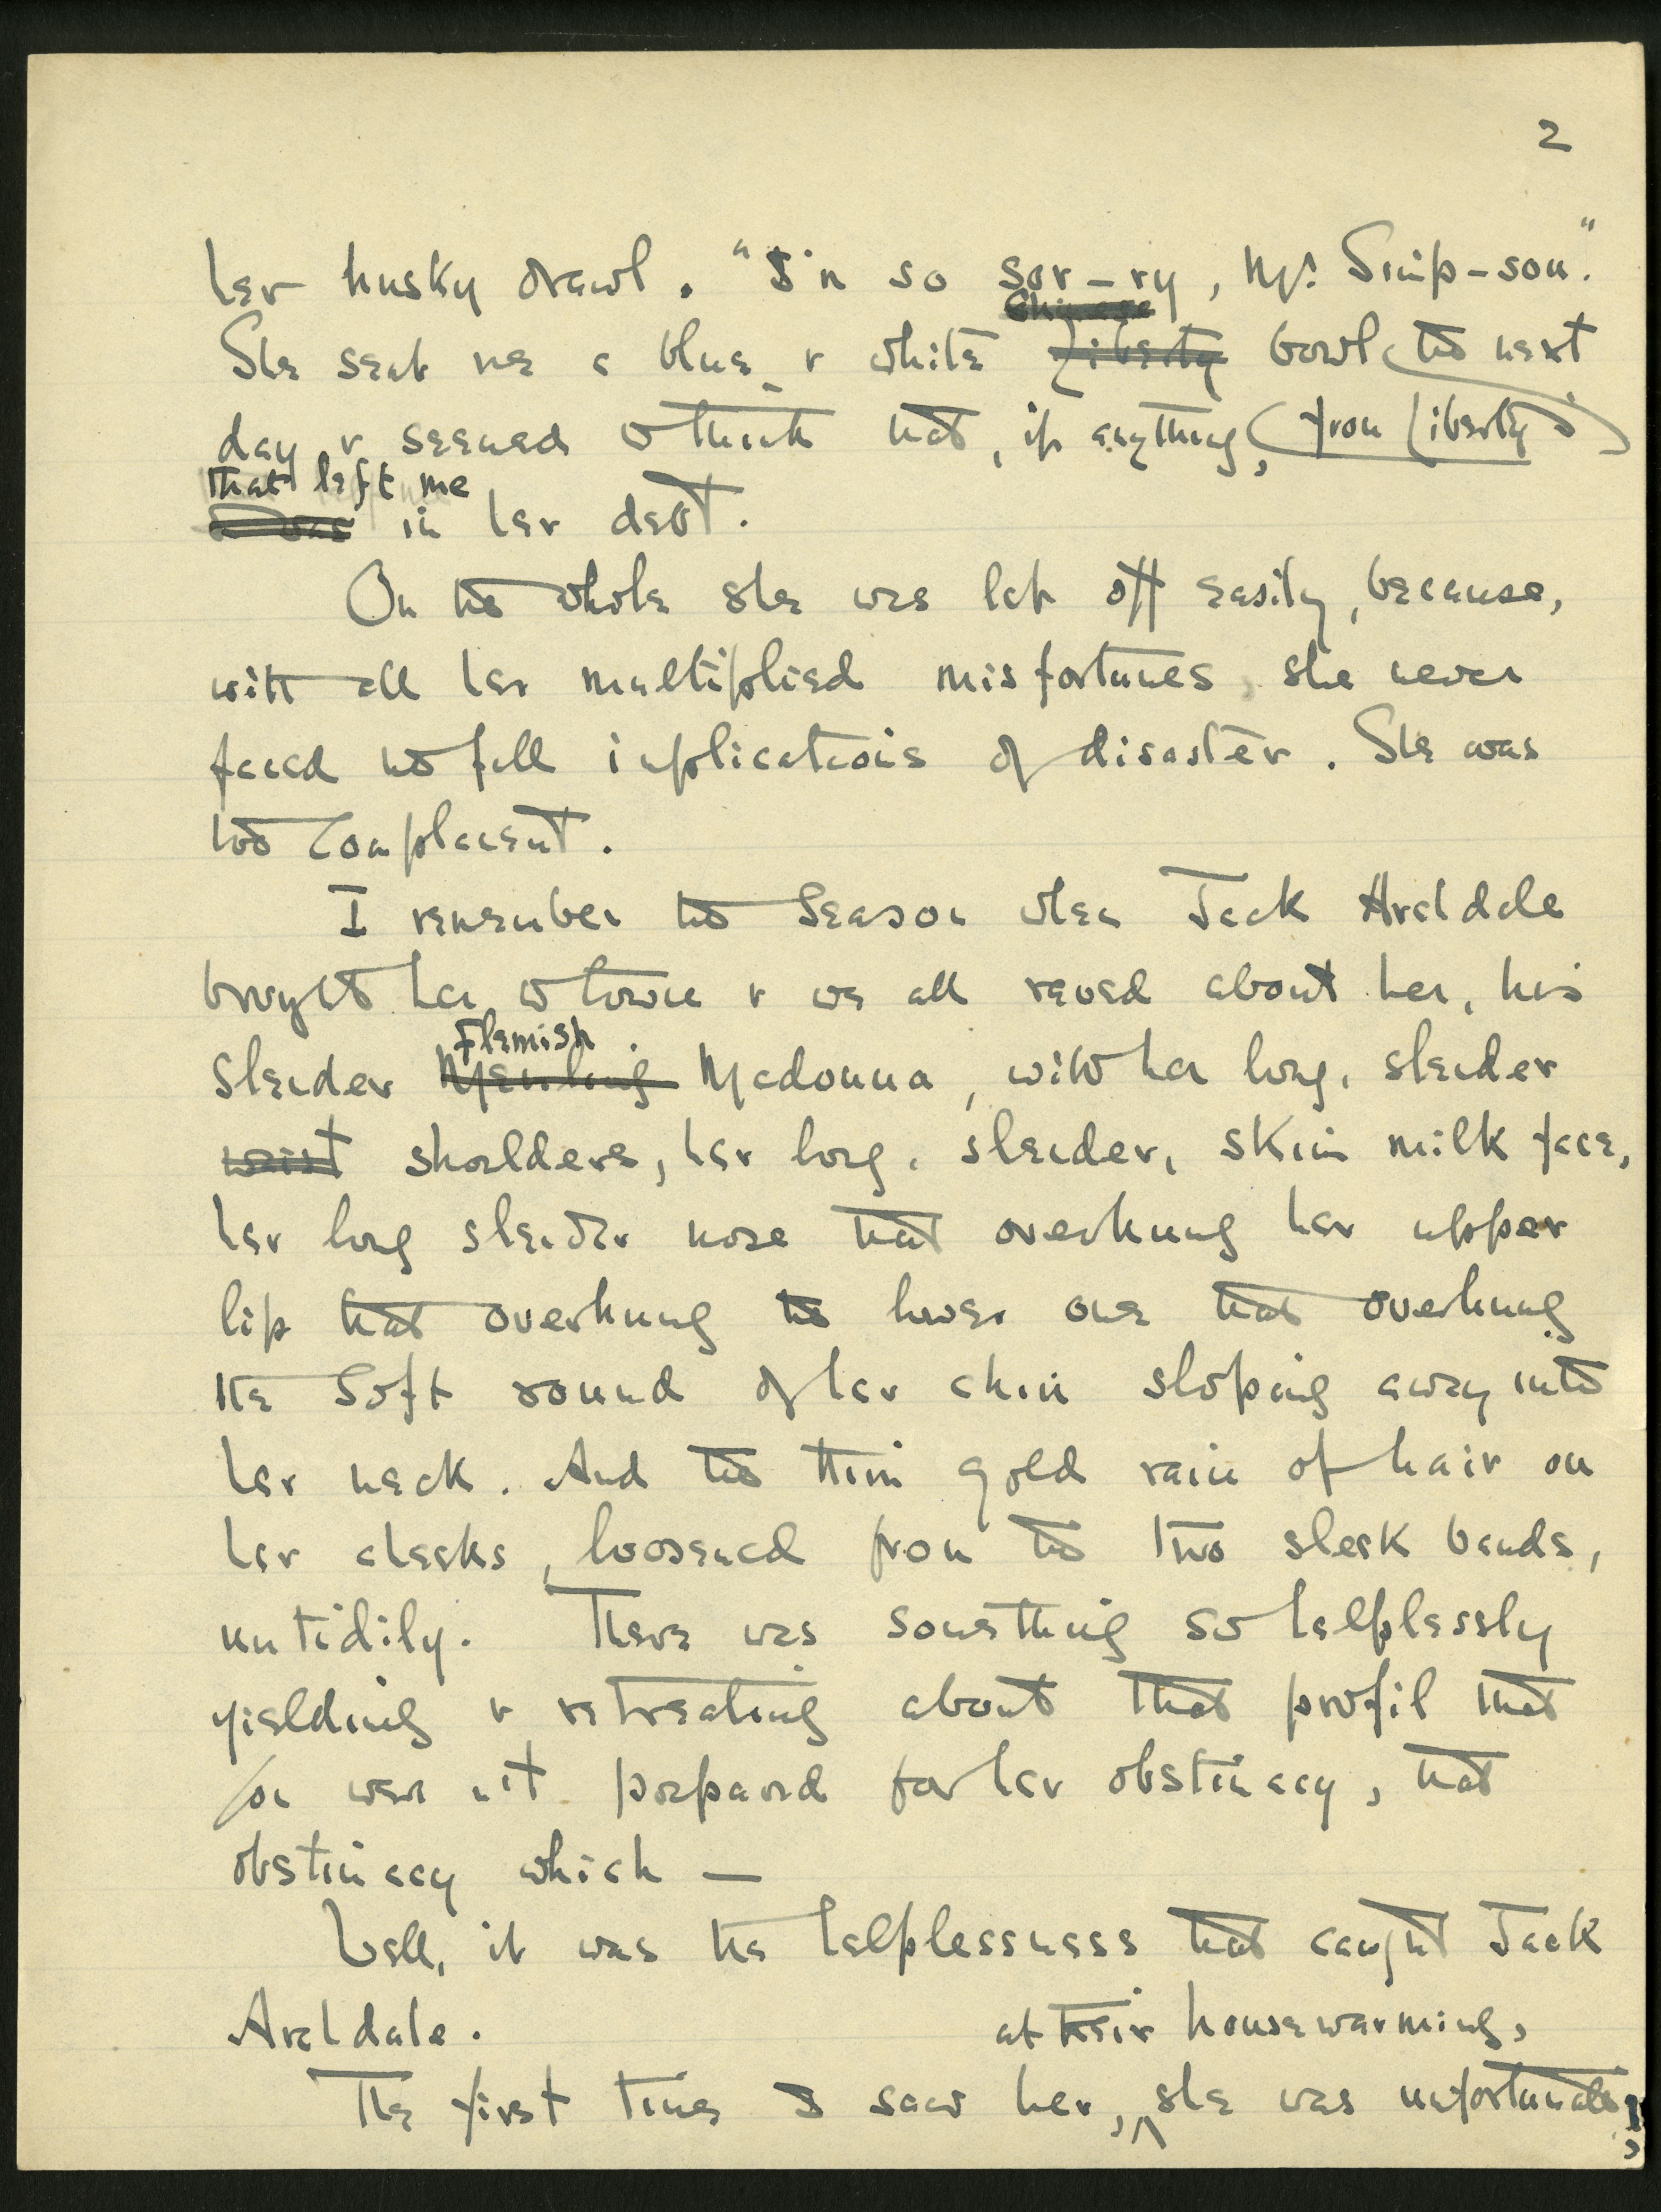 2
her husky drawl. "I'm so sor-ry, Mr. Simp-son."
Chinese
She sent me a blue & white Liberty bowl the next
day & seemed to think that, if anything, from Liberty's
that left me
in her debt.
On the whole she was let off easily, because,
with all her multiplied misfortunes, she never
faced the full implications of disaster. She was
too complacent.
I remember the season when Jack Archdale
brought her to town & we all raved about her, his
Flemish
slender Memling Madonna, with her long, slender
waist shoulders, her long, slender, skim milk face,
her long slender nose that overhung her upper
lip that overhung the lower one that overhung
the soft round of her chin sloping away into
her neck. And the thin gold rain of hair on
her cheeks, loosened from the two sleek bands,
untidily. There was something so helplessly
yielding & retreating about that profil that
you were not prepared for her obstinacy, that
obstinacy which —
Well, it was the helplessness that caught Jack
Archdale. at their housewarming,
The first time I saw her, she was unfortunate;